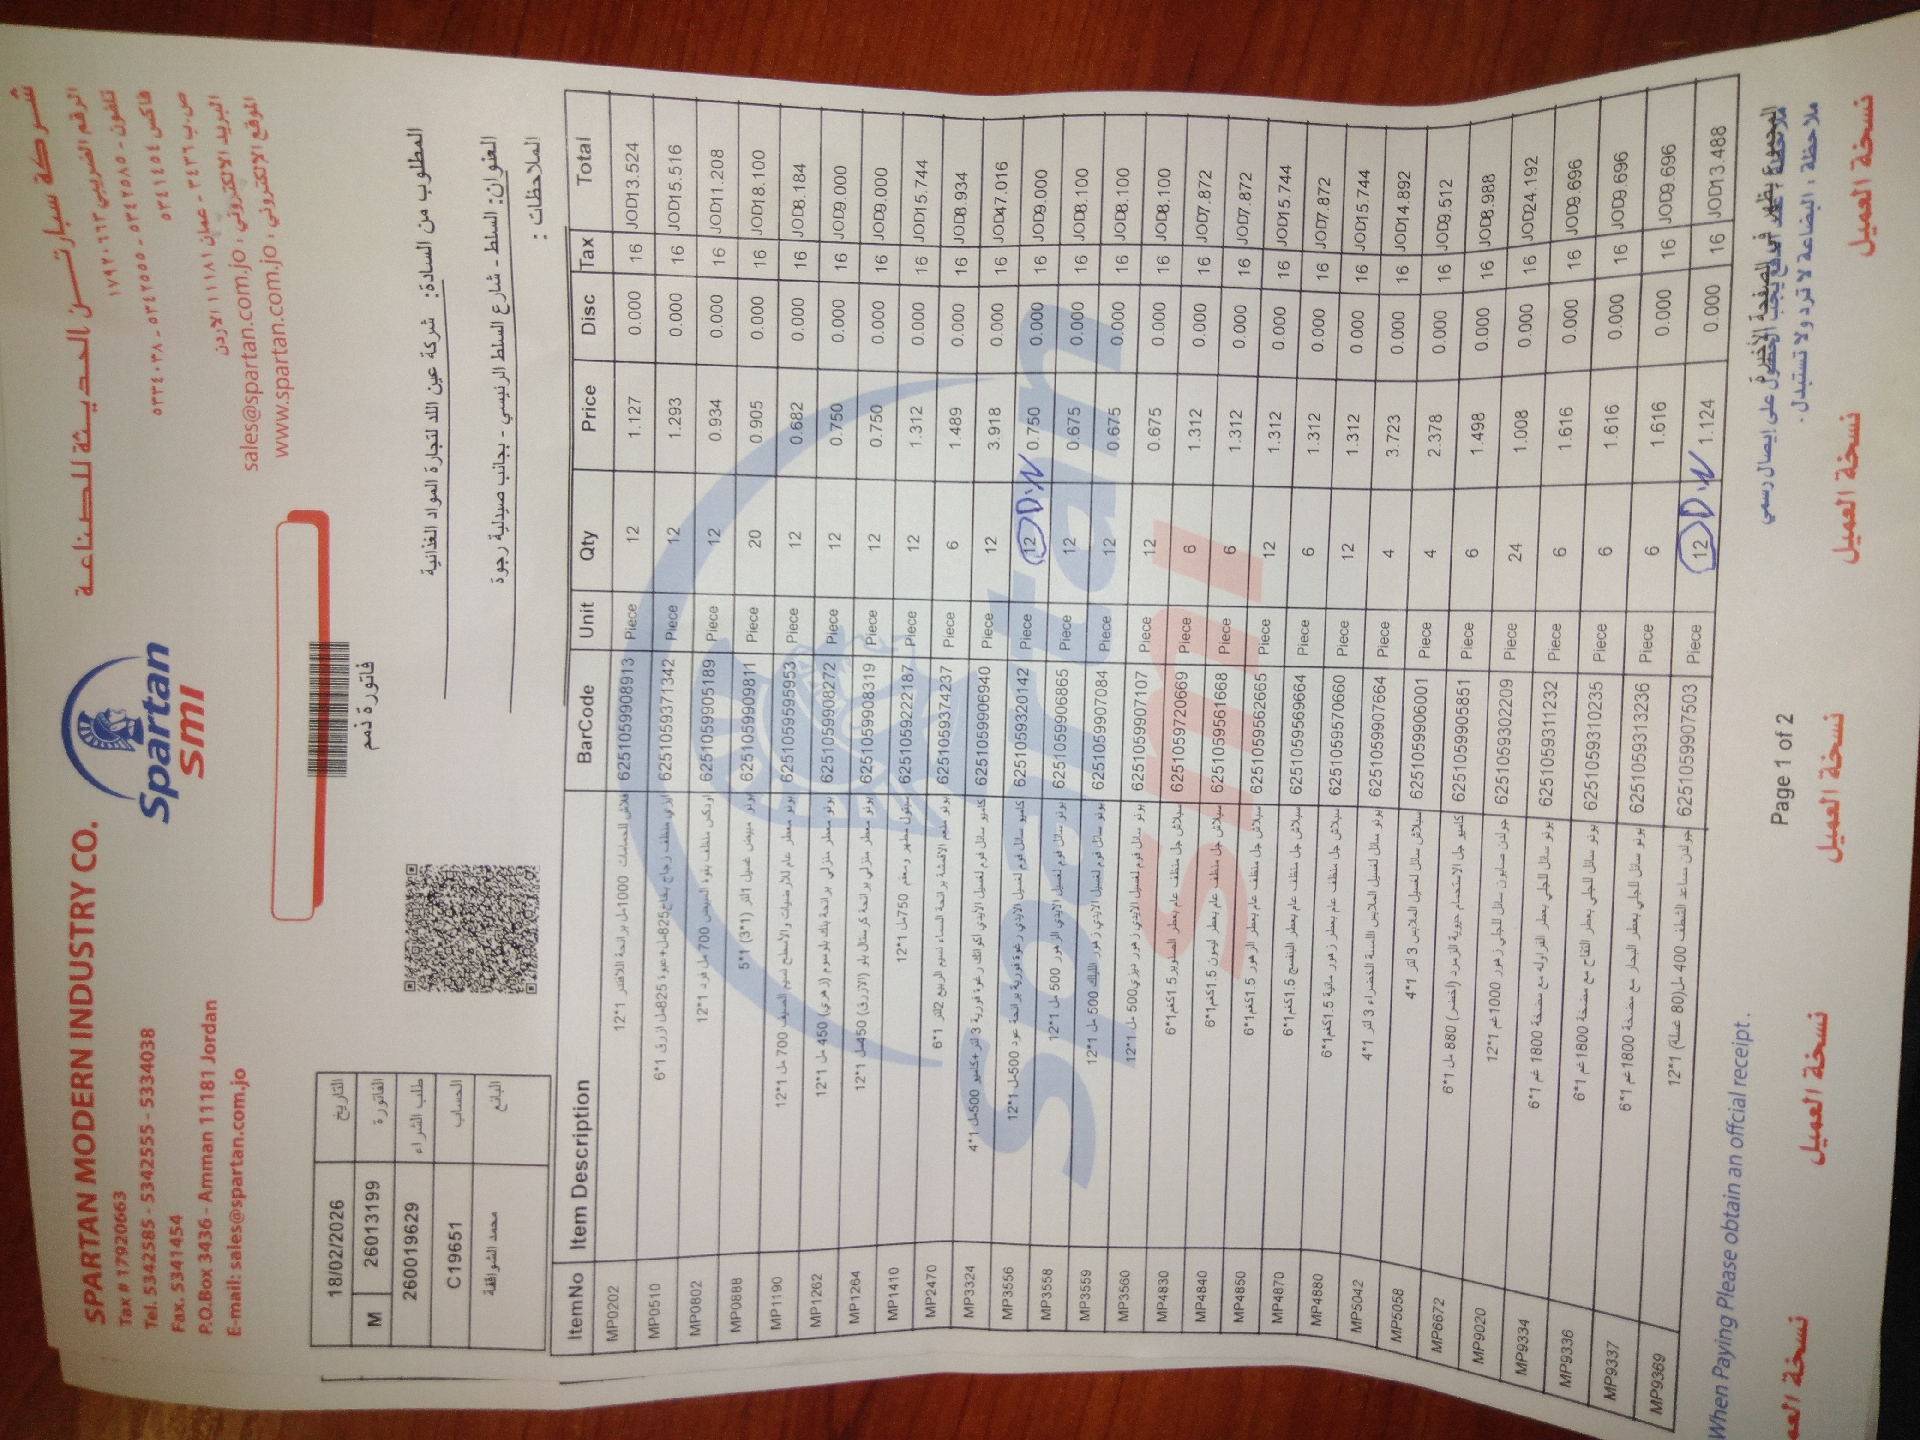 SPARTAN MODERN INDUSTRY CO.
Tax # 17920663
Tel. 5342585 - 5342555 - 5334038
Fax. 5341454
P.O.Box 3436 - Amman 11181 Jordan
E-mail: sales@spartan.com.jo
Spartan
smi
شركة سبارتن الحديثة للصناعة
الرقم الضريبي ١٧٩٢٠٦٦٣
تلفون ٥٣٤٢٥٨٥ - ٥٣٤٢٥٥٥ - ٥٣٣٤٠٣٨
فاكس ٥٣٤١٤٥٤
ص.ب ٣٤٣٦ - عمان ١١١٨١ الاردن
البريد الالكتروني : sales@spartan.com.jo
الموقع الالكتروني : www.spartan.com.jo
فاتورة ذمم
18/02/2026 التاريخ
M 26013199 الفاتورة
260019629 طلب الشراء
C19651 الحساب
محمد الشوابقة البائع
المطلوب من السادة: شركة عين اللد لتجارة المواد الغذائية
العنوان: السلط - شارع السلط الرئيسي - بجانب صيدلية رجوة
الملاحظات :
ItemNo Item Description BarCode Unit Qty Price Disc Tax Total
MP0202 فلاش للحمامات 1000مل برائحة اللافندر 1*12 6251059908913 Piece 12 1.127 0.000 16 JOD13.524
MP0510 6251059371342 Piece 12 1.293 0.000 16 JOD15.516
MP0802 6251059905189 Piece 12 0.934 0.000 16 JOD11.208
MP0888 بونو مبيض غسيل 1لتر (1*3) 1*5 6251059909811 Piece 20 0.905 0.000 16 JOD18.100
MP1190 بونو معطر عام للأرضيات والأسطح نسيم الصيف 700 مل 1*12 6251059595953 Piece 12 0.682 0.000 16 JOD8.184
MP1262 بونو معطر منزلي برائحة بنك بلوسوم (زهري) 450 مل 1*12 6251059908272 Piece 12 0.750 0.000 16 JOD9.000
MP1264 بونو معطر منزلي برائحة كرستال بلو (الازرق) 450مل 1*12 6251059908319 Piece 12 0.750 0.000 16 JOD9.000
MP1410 سبتول مطهر ومعقم 750مل 1*12 6251059222187 Piece 12 1.312 0.000 16 JOD15.744
MP2470 بونو منعم الاقمشة برائحة المساء نسيم الربيع 2لتر 1*6 6251059374237 Piece 6 1.489 0.000 16 JOD8.934
MP3324 6251059906940 Piece 12 3.918 0.000 16 JOD47.016
MP3556 كاميو سائل فوم لغسيل الايدي رغوة فورية برائحة عود 500مل 1*12 6251059320142 Piece 12 0.750 0.000 16 JOD9.000
MP3558 بونو سائل فوم لغسيل الايدي الزهور 500 مل 1*12 6251059906865 Piece 12 0.675 0.000 16 JOD8.100
MP3559 بونو سائل فوم لغسيل الايدي زهور الليلك 500 مل 1*12 6251059907084 Piece 12 0.675 0.000 16 JOD8.100
MP3560 6251059907107 Piece 12 0.675 0.000 16 JOD8.100
MP4830 سبلاش جل منظف عام بعطر الصنوبر 1.5كغم1*6 6251059720669 Piece 6 1.312 0.000 16 JOD7.872
MP4840 سبلاش جل منظف عام بعطر ليمون 1.5كغم1*6 6251059561668 Piece 6 1.312 0.000 16 JOD7.872
MP4850 سبلاش جل منظف عام بعطر الزهور 1.5كغم1*6 6251059562665 Piece 12 1.312 0.000 16 JOD15.744
MP4870 سبلاش جل منظف عام بعطر البنفسج 1.5كغم1*6 6251059569664 Piece 6 1.312 0.000 16 JOD7.872
MP4880 6251059570660 Piece 12 1.312 0.000 16 JOD15.744
MP5042 بونو سائل لغسيل الملابس اللمسة الخضراء 3 لتر 1*4 6251059907664 Piece 4 3.723 0.000 16 JOD14.892
MP5058 سبلاش سائل لغسيل الملابس 3 لتر 1*4 6251059906001 Piece 4 2.378 0.000 16 JOD9.512
MP6672 كاميو جل الاستحمام حيوية الزمرد (اخضر) 880 مل 1*6 6251059905851 Piece 6 1.498 0.000 16 JOD8.988
MP9020 جولدن صابون سائل للجلي زهور 1000غم 1*12 6251059302209 Piece 24 1.008 0.000 16 JOD24.192
MP9334 بونو سائل للجلي بعطر الفراولة مع مضخة 1800 غم 1*6 6251059311232 Piece 6 1.616 0.000 16 JOD9.696
MP9336 بونو سائل للجلي بعطر التفاح مع مضخة 1800غم 1*6 6251059310235 Piece 6 1.616 0.000 16 JOD9.696
MP9337 بونو سائل للجلي بعطر البحار مع مضخة 1800غم 1*6 6251059313236 Piece 6 1.616 0.000 16 JOD9.696
MP9369 جولدن مساعد الشطف 400 مل(80 غسلة) 1*12 6251059907503 Piece 12 1.124 0.000 16 JOD13.488
Spartan
smi
When Paying Please obtain an offcial receipt .
Page 1 of 2
المجموع يظهر في الصفحة الأخيرة
ملاحظة : عند الدفع يجب الحصول على إيصال رسمي
ملاحظة : البضاعة لا ترد ولا تستبدل .
نسخة العميل نسخة العميل نسخة العميل نسخة العميل نسخة العميل